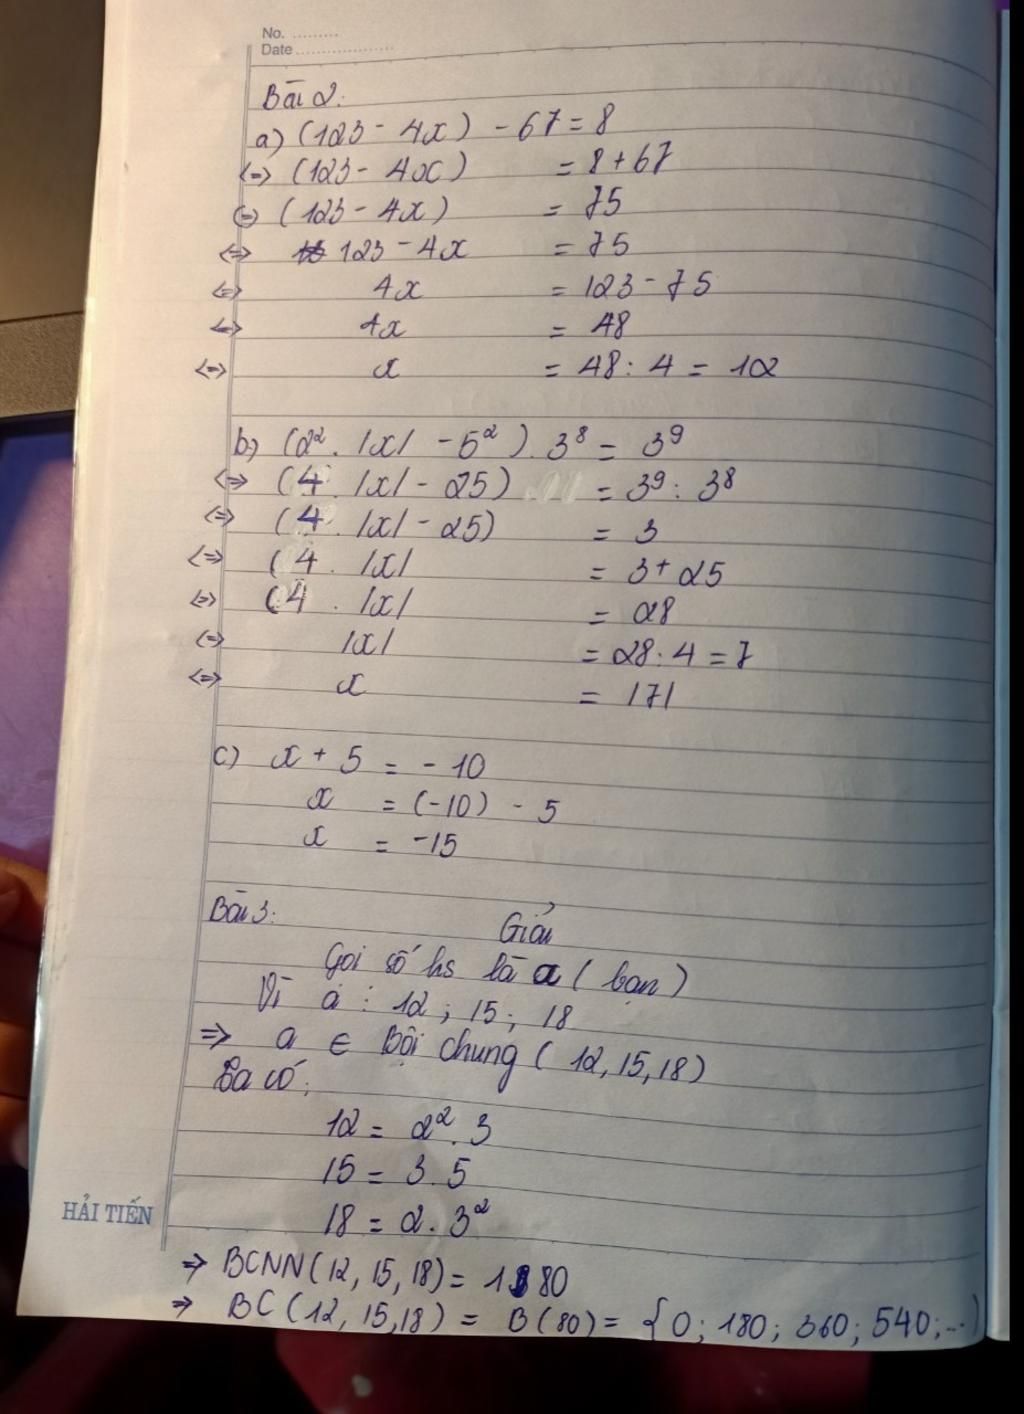 No. .........
Date ...................
Bài 2:
a) (123 - 4x) - 67 = 8
<=> (123 - 4x) = 8 + 67
<=> (123 - 4x) = 75
<=> 123 - 4x = 75
<=> 4x = 123 - 75
<=> 4x = 48
<=> x = 48 : 4 = 12
b) (2² . |x| - 5²) . 3⁸ = 3⁹
<=> (4 . |x| - 25) = 3⁹ : 3⁸
<=> (4 . |x| - 25) = 3
<=> (4 . |x| = 3 + 25
<=> (4 . |x| = 28
<=> |x| = 28 : 4 = 7
<=> x = |7|
c) x + 5 = - 10
x = (-10) - 5
x = -15
Bài 3:
Giải
Gọi số hs là a (bạn)
Vì a ⋮ 12 ; 15 ; 18
=> a ∈ Bội chung (12, 15, 18)
Ta có:
12 = 2² . 3
15 = 3 . 5
18 = 2 . 3²
HẢI TIẾN
=> BCNN(12, 15, 18) = 180
=> BC(12, 15, 18) = B(80) = {0; 180; 360; 540; ...}